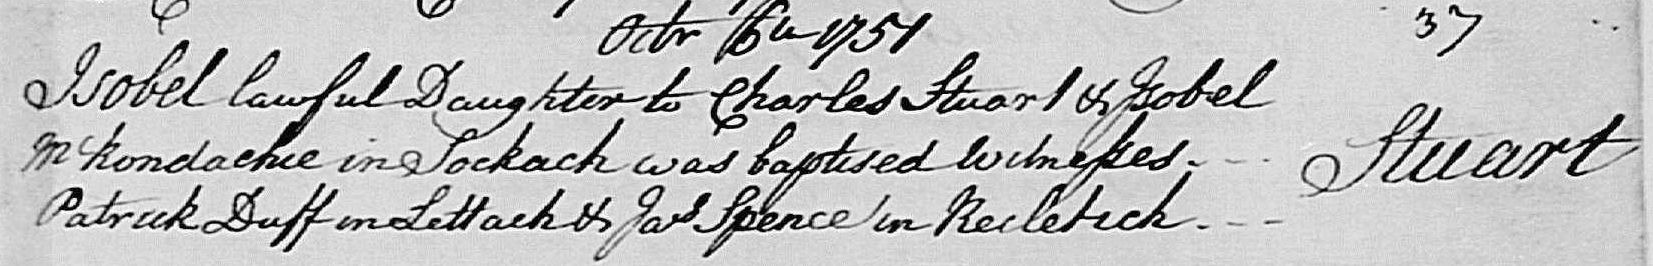 Octr 6th 1751
37
Isobel lawful Daughter to Charles Stuart & Isobel
McKondachie in Tockach was baptised Witnesses. - -
Stuart
Patrick Duff in Lettach & Jas Spence in Recletich. - - -